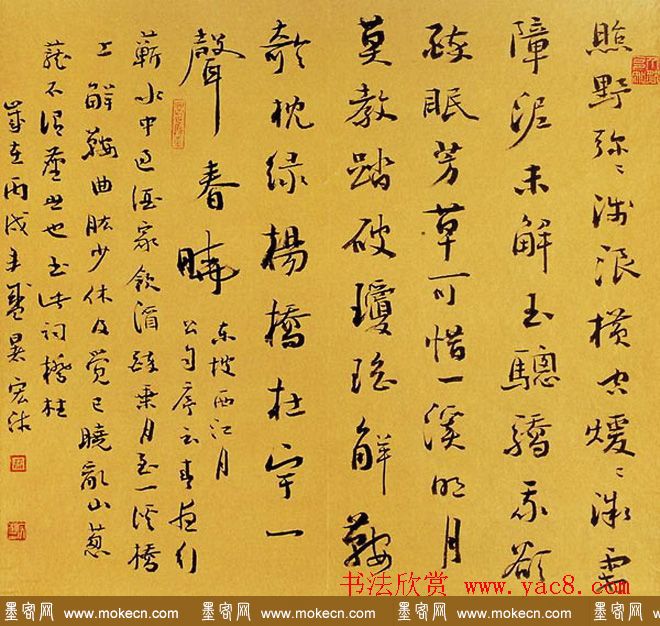 照野弥〻浅浪横空暧〻微霄
障泥未解玉驄驕我欲
醉眠芳草可惜一溪明月
莫教踏破瓊瑶解鞍
欹枕绿楊橋杜宇一
聲春曉
东坡西江月
公自序云春夜行
蕲水中过酒家飲酒醉乘月至一溪橋
上解鞍曲肱少休及覺已曉亂山葱
蘢不謂塵世也书此词橋柱
歲在丙戌年
书法欣赏 www.yac8.com
墨客网 www.mokecn.com 墨客网 www.mokecn.com 墨客网 www.mokecn.com 墨客网 www.mokecn.com